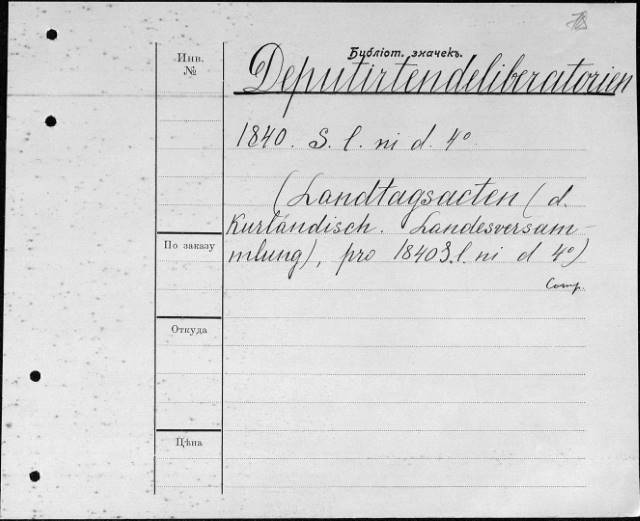 Библіот. значекъ.
Инв.
№
Deputirtendeliberatorien
1840. S. l. ni d. 4°
(Landtagsacten (d.
Kurländisch. Landesversam-
mlung), pro 1840 S. l. ni d 4°)
Comp.
По заказу
Откуда
Цѣна